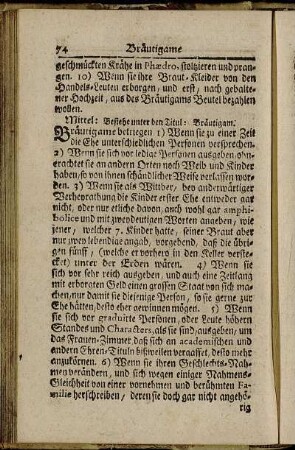 74 Bräutigame
geschmückten Krähe in Phædro, stoltzieren und pran-
gen. 10) Wenn sie ihre Braut-Kleider von den
Handels-Leuten erborgen, und erst, nach gehalte-
ner Hochzeit, aus des Bräutigams Beutel bezahlen
wollen.
Mittel: Bestehe unter den Titul: Bräutigam.
Bräutigame betriegen 1) Wenn sie zu einer Zeit
die Ehe unterschiedlichen Personen versprechen.
2) Wenn sie sich vor ledige Personen ausgeben, ohn-
erachtet sie an andern Orten noch Weib und Kinder
haben, so von ihnen schändlicher Weise verlassen wor-
den. 3) Wenn sie als Wittber, bey anderwärtiger
Verheyrathung die Kinder erster Ehe entweder gar
nicht, oder nur etliche davon, auch wohl gar amphi-
bolice und mit zweydeutigen Worten angeben, wie
jener, welcher 7. Kinder hatte, seiner Braut aber
nur zwey lebendige angab, vorgebend, daß die übri-
gen fünff, (welche er vorhero in den Keller verste-
cket) unter der Erden wären. 4) Wenn sie
sich vor sehr reich ausgeben, und auch eine Zeitlang
mit erborgten Geld einen grossen Staat von sich ma-
chen, nur damit sie diejenige Person, so sie gerne zur
Ehe hätten, desto eher gewinnen mögen. 5) Wenn
sie sich vor graduirte Personen, oder Leute höhern
Standes und Characters, als sie sind, ausgeben, um
das Frauen-Zimmer, daß sich an academischen und
andern Ehren-Tituln bißweilen vergaffet, desto mehr
anzukörnen. 6) Wenn sie ihren Geschlechts-Nah-
men verändern, und sich wegen einiger Nahmens-
Gleichheit von einer vornehmen und berühmten Fa-
milie herschreiben, deren sie doch gar nicht angehö-
rig